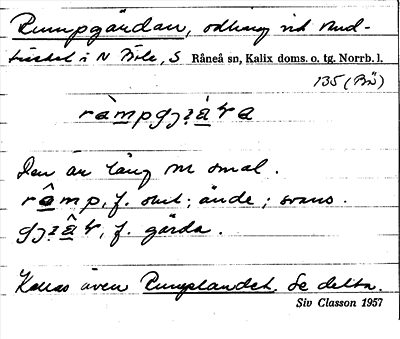 Rumpgärdan, odling vid And-
träsket i N Böle, S Råneå sn, Kalix doms. o. tg. Norrb. l.
135 (Bö)
Den är lång o smal.
f. slut; ände; svans.
f. gärda.
Kallas även Rumplandet. Se detta.
Siv Classon 1957